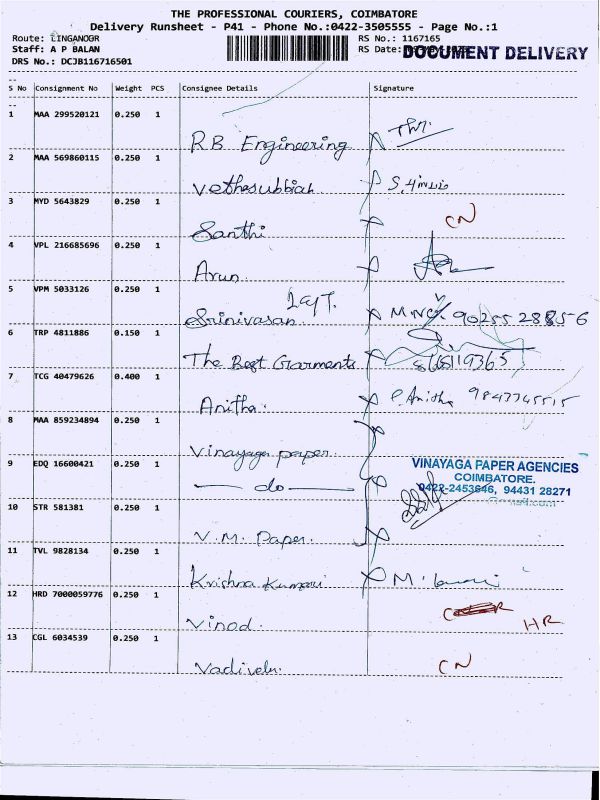 THE PROFESSIONAL COURIERS, COIMBATORE
Delivery Runsheet - P41 - Phone No.:0422-3505555 - Page No.:1
Route: LINGANOGR RS No.: 1167165
Staff: A P BALAN RS Date: DOCUMENT DELIVERY
DRS No.: DCJB116716501
S No Consignment No Weight PCS Consignee Details Signature
1 MAA 299520121 0.250 1
R.B Engineering
2 MAA 569860115 0.250 1
Vethasubbiah
3 MYD 5643829 0.250 1
Santhi CN
4 VPL 216685696 0.250 1
Arun
5 VPM 5033126 0.250 1
Srinivasan 90255 28856
6 TRP 4811886 0.150 1
The Best Garments
7 TCG 40479626 0.400 1
Anitha. P. Anitha 9843745515
8 MAA 859234894 0.250 1
Vinayaga paper.
9 EDQ 16600421 0.250 1 VINAYAGA PAPER AGENCIES
COIMBATORE.
— do — 0422-2453646, 94431 28271
10 STR 581381 0.250 1
V.M. Paper.
11 TVL 9828134 0.250 1
Krishna Kumari
12 HRD 7000059776 0.250 1
Vinod. HR
13 CGL 6034539 0.250 1
Vadivelu. CN